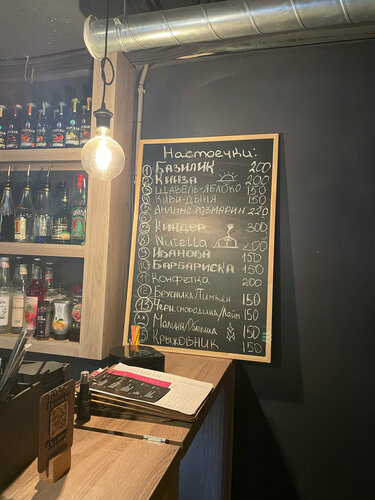 Настоечки:
① Базилик 200
② Кинза 200
③ Щавель-яблоко 150
Киви-дыня 150
Ананас-розмарин 220
Киндер 300
Nutella 200
⑨ Иванова 150
10 Барбариска 150
Конфетка 200
Брусника/Тимьян 150
13 Черн.смородина/Лайм 150
Малина/Облепиха 150
Крыжовник 150